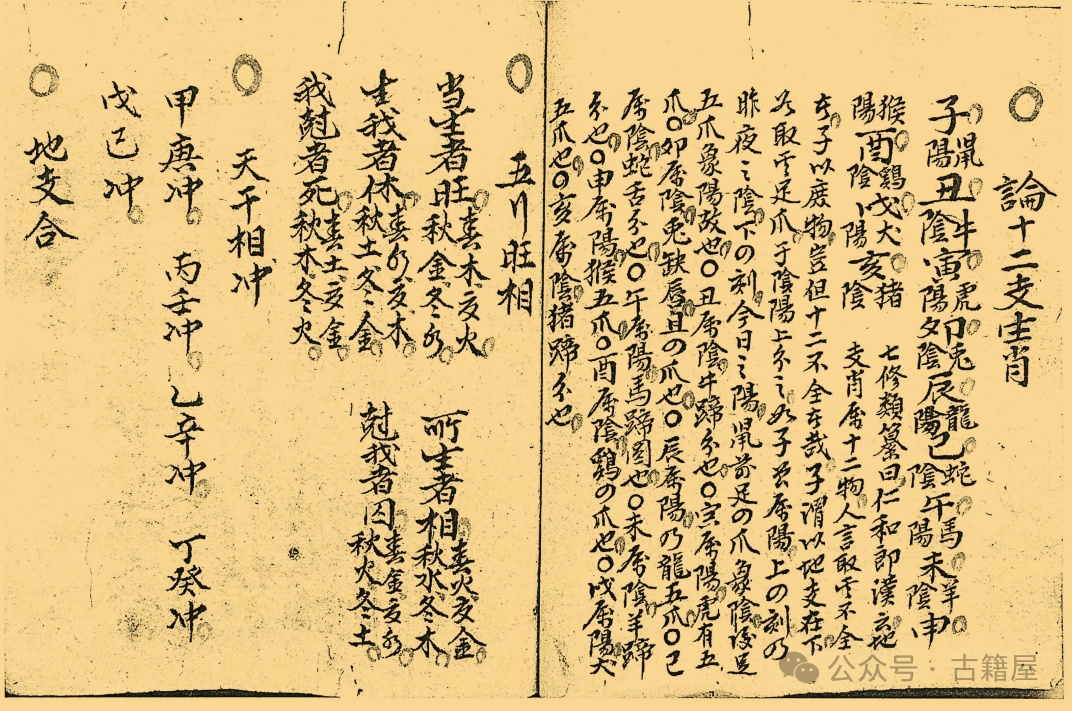 論十二支生肖
子鼠陽丑牛陰寅虎陽卯兎陰辰龍陽巳蛇陰午馬陽未羊陰申
猴陽酉鷄陰戌犬陽亥猪陰 七修類纂曰仁和郎漢云地支肖属十二物人言取不全
在子以庶物豈但十二不全在哉子謂以地支在下
必取足爪于陰陽上分之如子虽属陽上四刻乃
昨夜之陰下四刻今日之陽鼠前足四爪象陰後足
五爪象陽故也〇丑属陰牛蹄分也〇寅属陽虎有五
爪〇卯属陰兎缺唇且四爪也〇辰属陽乃龍五爪〇巳
属陰蛇舌分也〇午属陽馬蹄圆也〇未属陰羊蹄
分也〇申属陽猴五爪〇酉属陰鷄四爪也〇戌属陽犬
五爪也〇亥属陰猪蹄分也
五行旺相
当生者旺春木夏火秋金冬水 所生者相春火夏金秋水冬木
生我者休春水夏木秋土冬金 尅我者囚春金夏水秋火冬土
我尅者死春土夏金秋木冬火
天干相冲
甲庚冲 丙壬冲 乙辛冲 丁癸冲
戊己冲
地支合
公众号·古籍屋